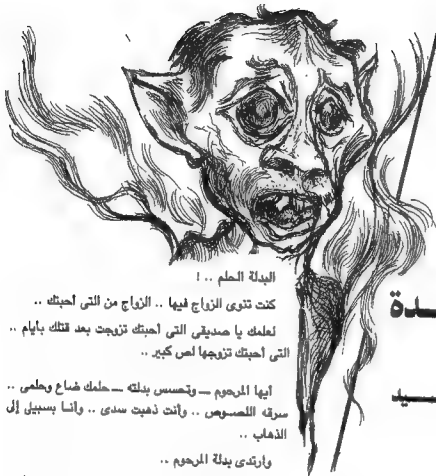 البدلة الحلم .. !
كنت تنوى الزواج فيها .. الزواج من التى أحبتك ..
لعلمك يا صديقى التى أحبتك تزوجت بعد قتلك بأيام ..
التى أحبتك تزوجها لص كبير ..
أيها المرحوم ــ وتحسس بدلته ــ حلمك ضاع وحلمى ..
سرقه اللصوص .. وأنت ذهبت سدى .. وانا بسبيل إلى
الذهاب ..
وارتدى بدلة المرحوم ..
ـدة
ـيد